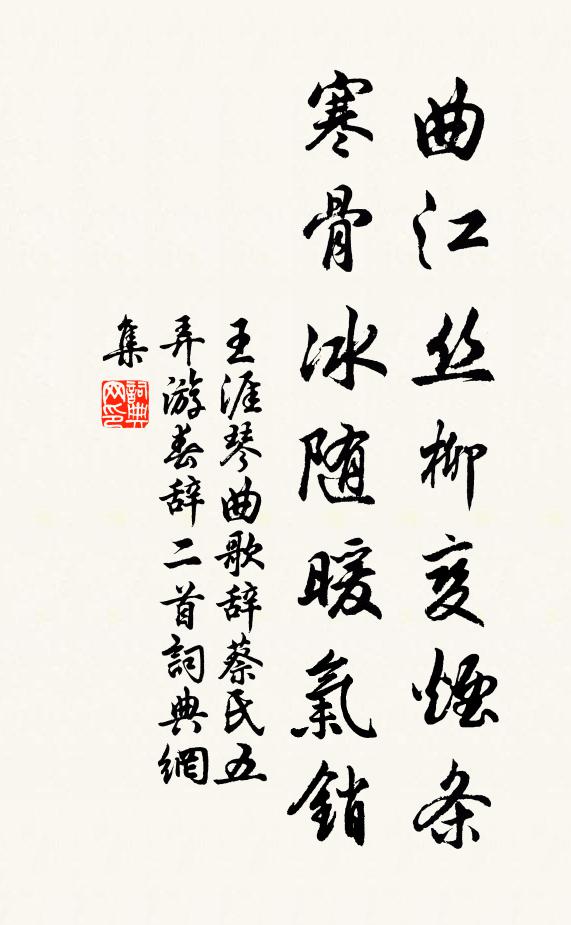 曲江丝柳变烟条
寒骨冰随暖气销
王涯琴曲歌辞蔡氏五
弄游春辞二首詞典網
集
詞典网印